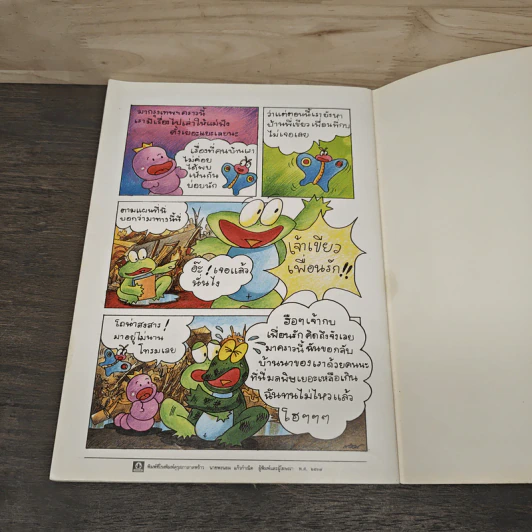 มากรุงเทพฯคราวนี้
เรามีเรื่องไปเล่าให้แม่ฟัง
ตั้งเยอะแยะเลยนะ
เรื่องที่คนบ้านเรา
ไม่ค่อย
ได้พบ
เห็นกัน
บ่อยนัก
ว่าแต่ตอนนี้เรายังหา
บ้านพี่เขียวเพื่อนพี่กบ
ไม่เจอเลย
ตามแผนที่นี่
บอกว่ามาทางนี้นี่
อ๊ะ! เจอแล้ว
นั่นไง
เจ้าเขียว
เพื่อนรัก!!
โถน่าสงสาร!
มาอยู่ไม่นาน
โทรมเลย
ฮือๆเจ้ากบ
เพื่อนรักคิดถึงจังเลย
มาคราวนี้ฉันขอกลับ
บ้านนาของเราด้วยคนนะ
ที่นี่มลพิษเยอะเหลือเกิน
ฉันทนไม่ไหวแล้ว
โฮๆๆๆ
พิมพ์ที่โรงพิมพ์คุรุสภาลาดพร้าว ผู้พิมพ์และผู้โฆษณา พ.ศ.